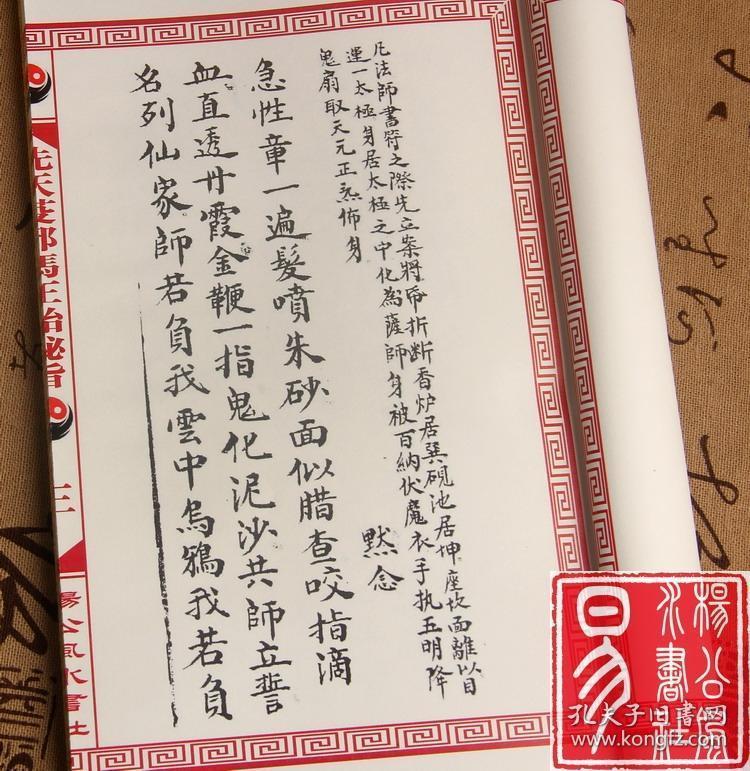 凡法師書符之際先立案將帋折断香炉居巽硯池居坤座坎面離以目
運一太極身居太極之中化為薩師身被百納伏魔衣手执五明降
鬼扇取天元正炁佈身
默念
急性章一遍髮噴朱砂面似腊查咬指滴
血直透丹霞金鞭一指鬼化泥沙共師立誓
名列仙家師若負我雲中烏鴉我若負
先天芝部馬王治秘旨
三
楊公風水書社
楊公風
水書社
易
孔夫子旧書网
www.kongfz.com